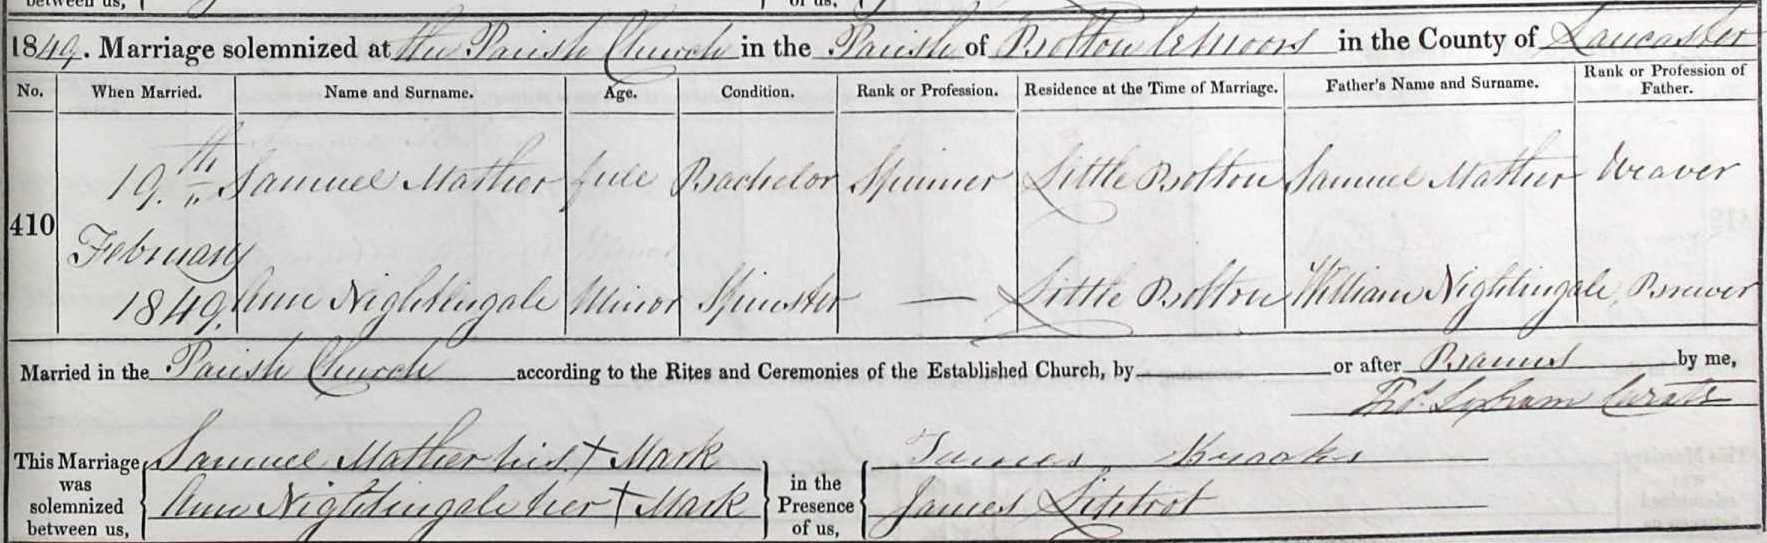 1849. Marriage solemnized at the Parish Church in the Parish of Bolton le Moors in the County of Lancaster
No. When Married. Name and Surname. Age. Condition. Rank or Profession. Residence at the Time of Marriage. Father's Name and Surname. Rank or Profession of Father.
410 19th February 1849. Samuel Mather full Bachelor Spinner Little Bolton Samuel Mather Weaver
Ann Nightingale Minor Spinster — Little Bolton William Nightingale Brewer
Married in the Parish Church according to the Rites and Ceremonies of the Established Church, by or after Banns by me,
Curate
This Marriage was solemnized between us, Samuel Mather his + Mark
Ann Nightingale her + Mark
in the Presence of us, James
James